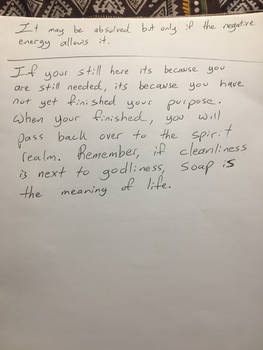 It may be absolved but only if the negative
energy allows it.
If your still here its because you
are still needed, its because you have
not yet finished your purpose.
When your finished, you will
pass back over to the spirit
realm. Remember, if cleanliness
is next to godliness, soap is
the meaning of life.